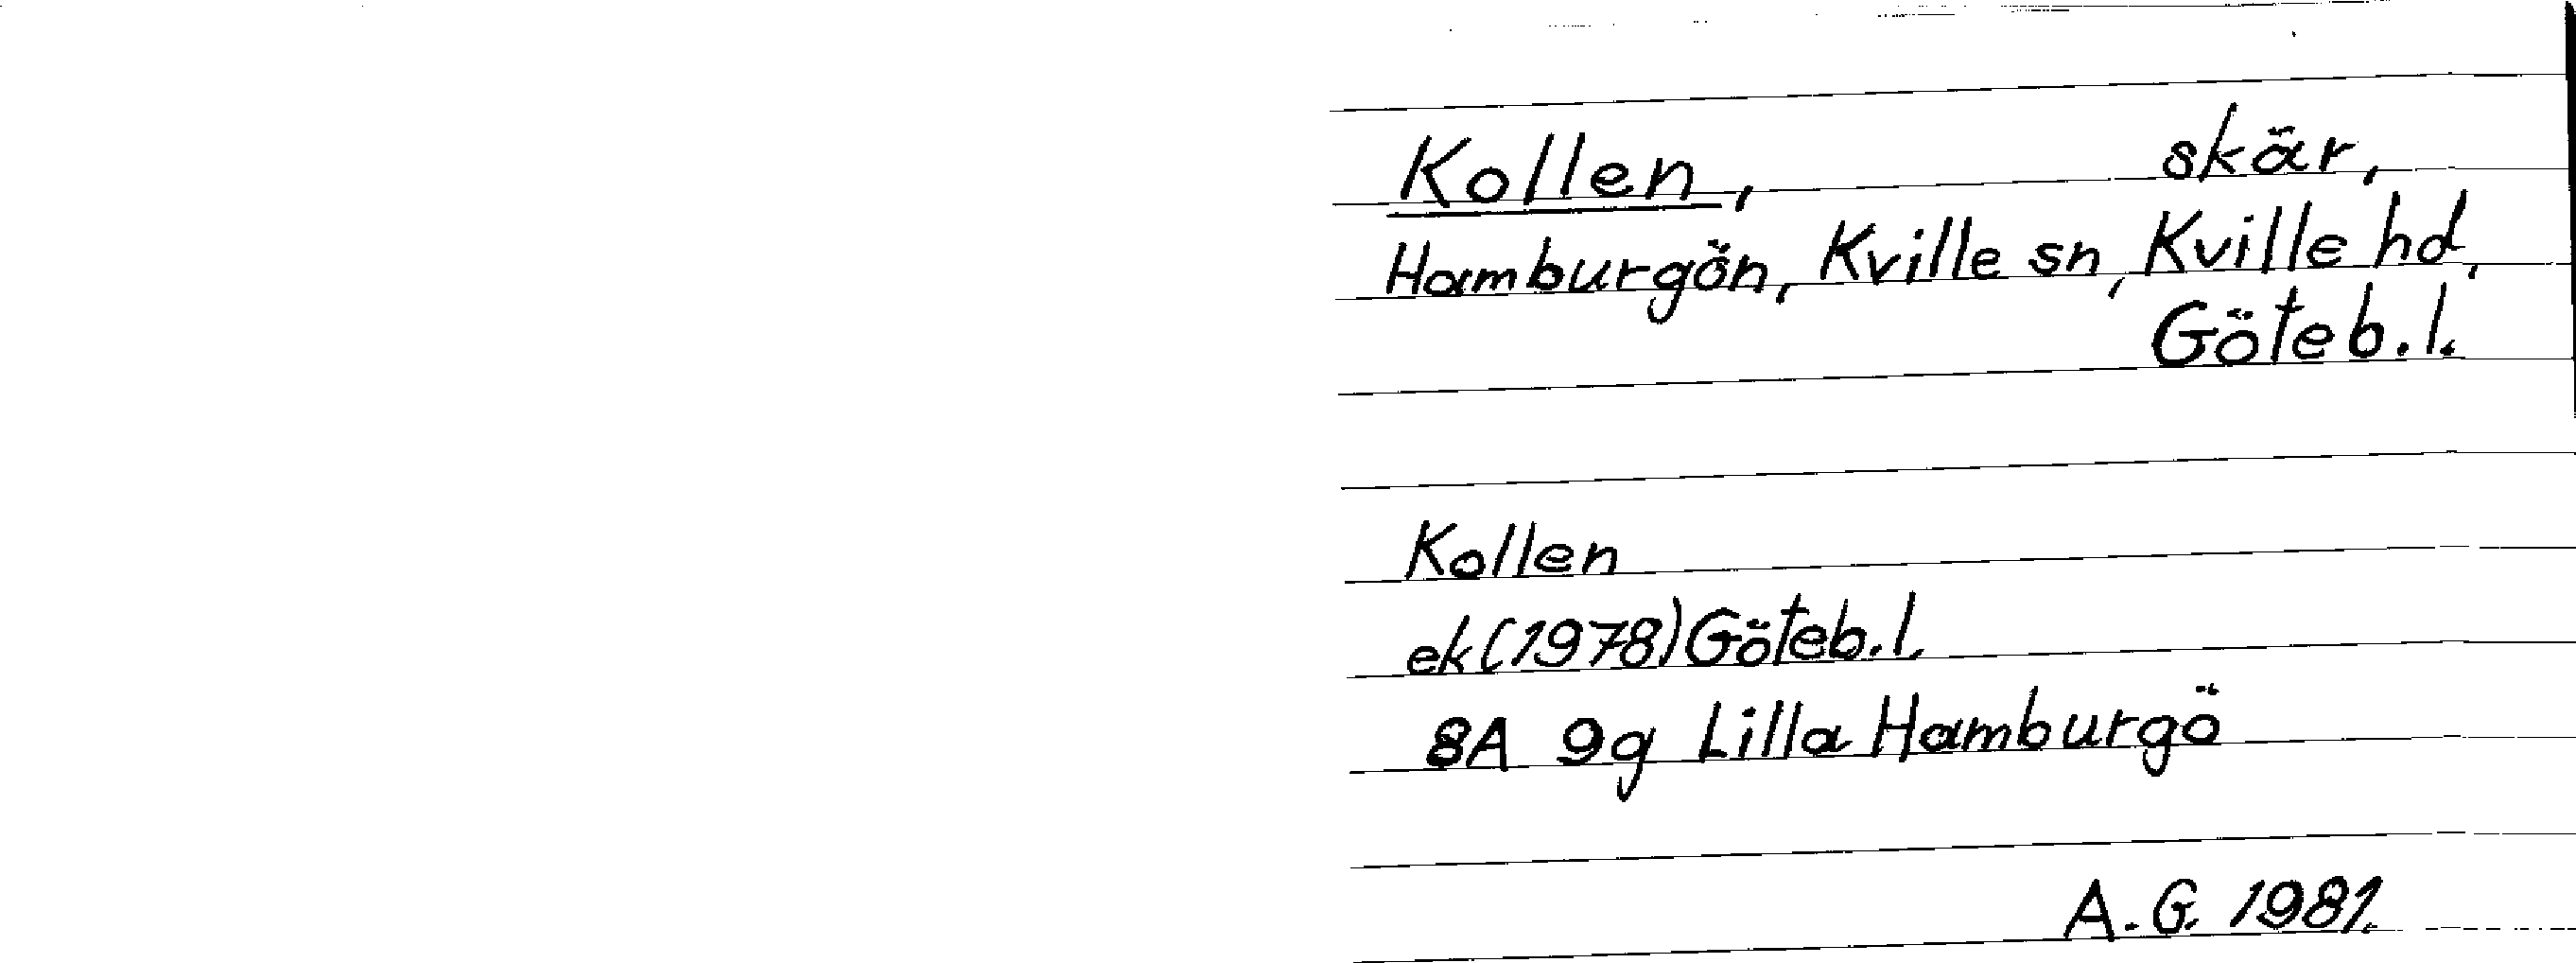 Kollen, skär,
Hamburgön, Kville sn, Kville hd,
Göteb.l.
Kollen
ek (1978) Göteb.l.
8A 9g Lilla Hamburgö
A.G. 1981.